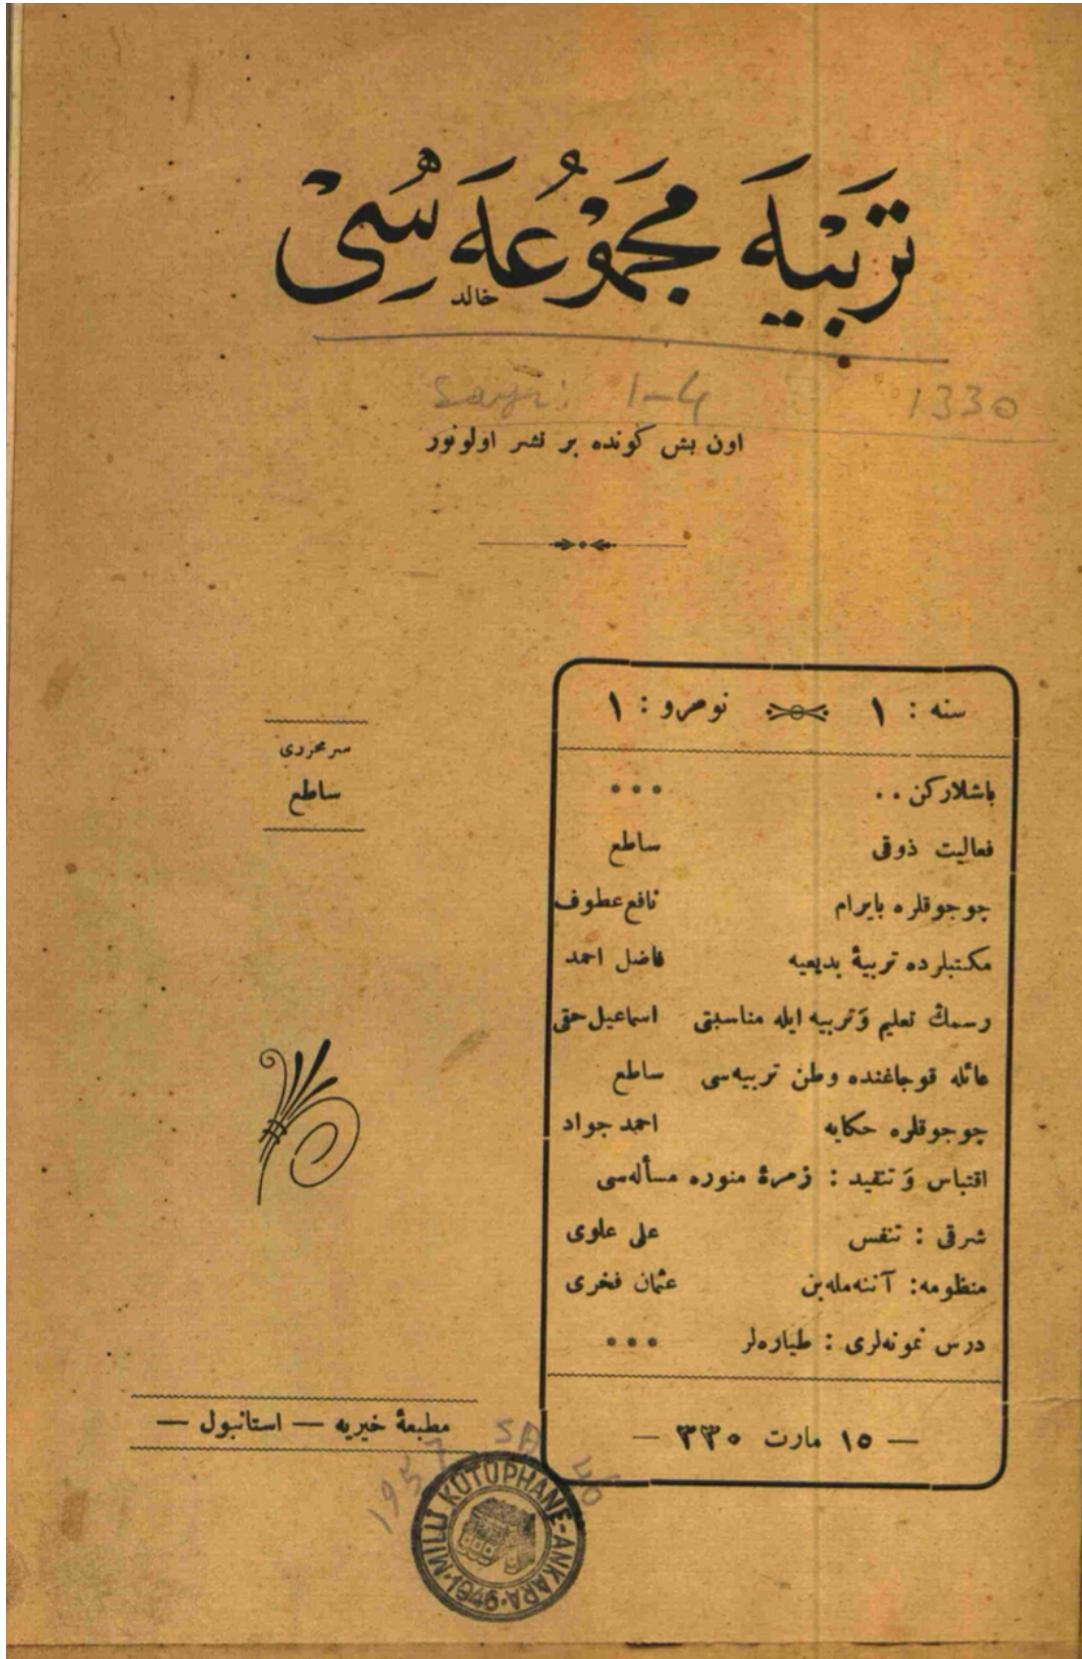 تربیه مجموعه‌سی
خالد
Sayı: 1-4 1330
اون بش کونده بر نشر اولونور
سنه : ١ نومرو : ١
باشلارکن . . * * *
فعالیت ذوقی ساطع
چوجوقلره بایرام نافع عطوف
مکتبلرده تربیهٔ بدیعیه فاضل احمد
رسمڭ تعلیم وَ تربیه ایله مناسبتی اسماعیل حقی
عائله قوجاغنده وطن تربیه‌سی ساطع
چوجوقلره حکایه احمد جواد
اقتباس وَ تنقید : زمرهٔ منوره مسأله‌سی
شرقی : تنفس علی علوی
منظومه: آننه‌مله‌بن عثمان فخری
درس نمونه‌لری : طیاره‌لر * * *
— ١٥ مارت ٣٣٠ —
سرمحرری
ساطع
مطبعهٔ خیریه — استانبول —
MİLLİ KÜTÜPHANE-ANKARA·1946·